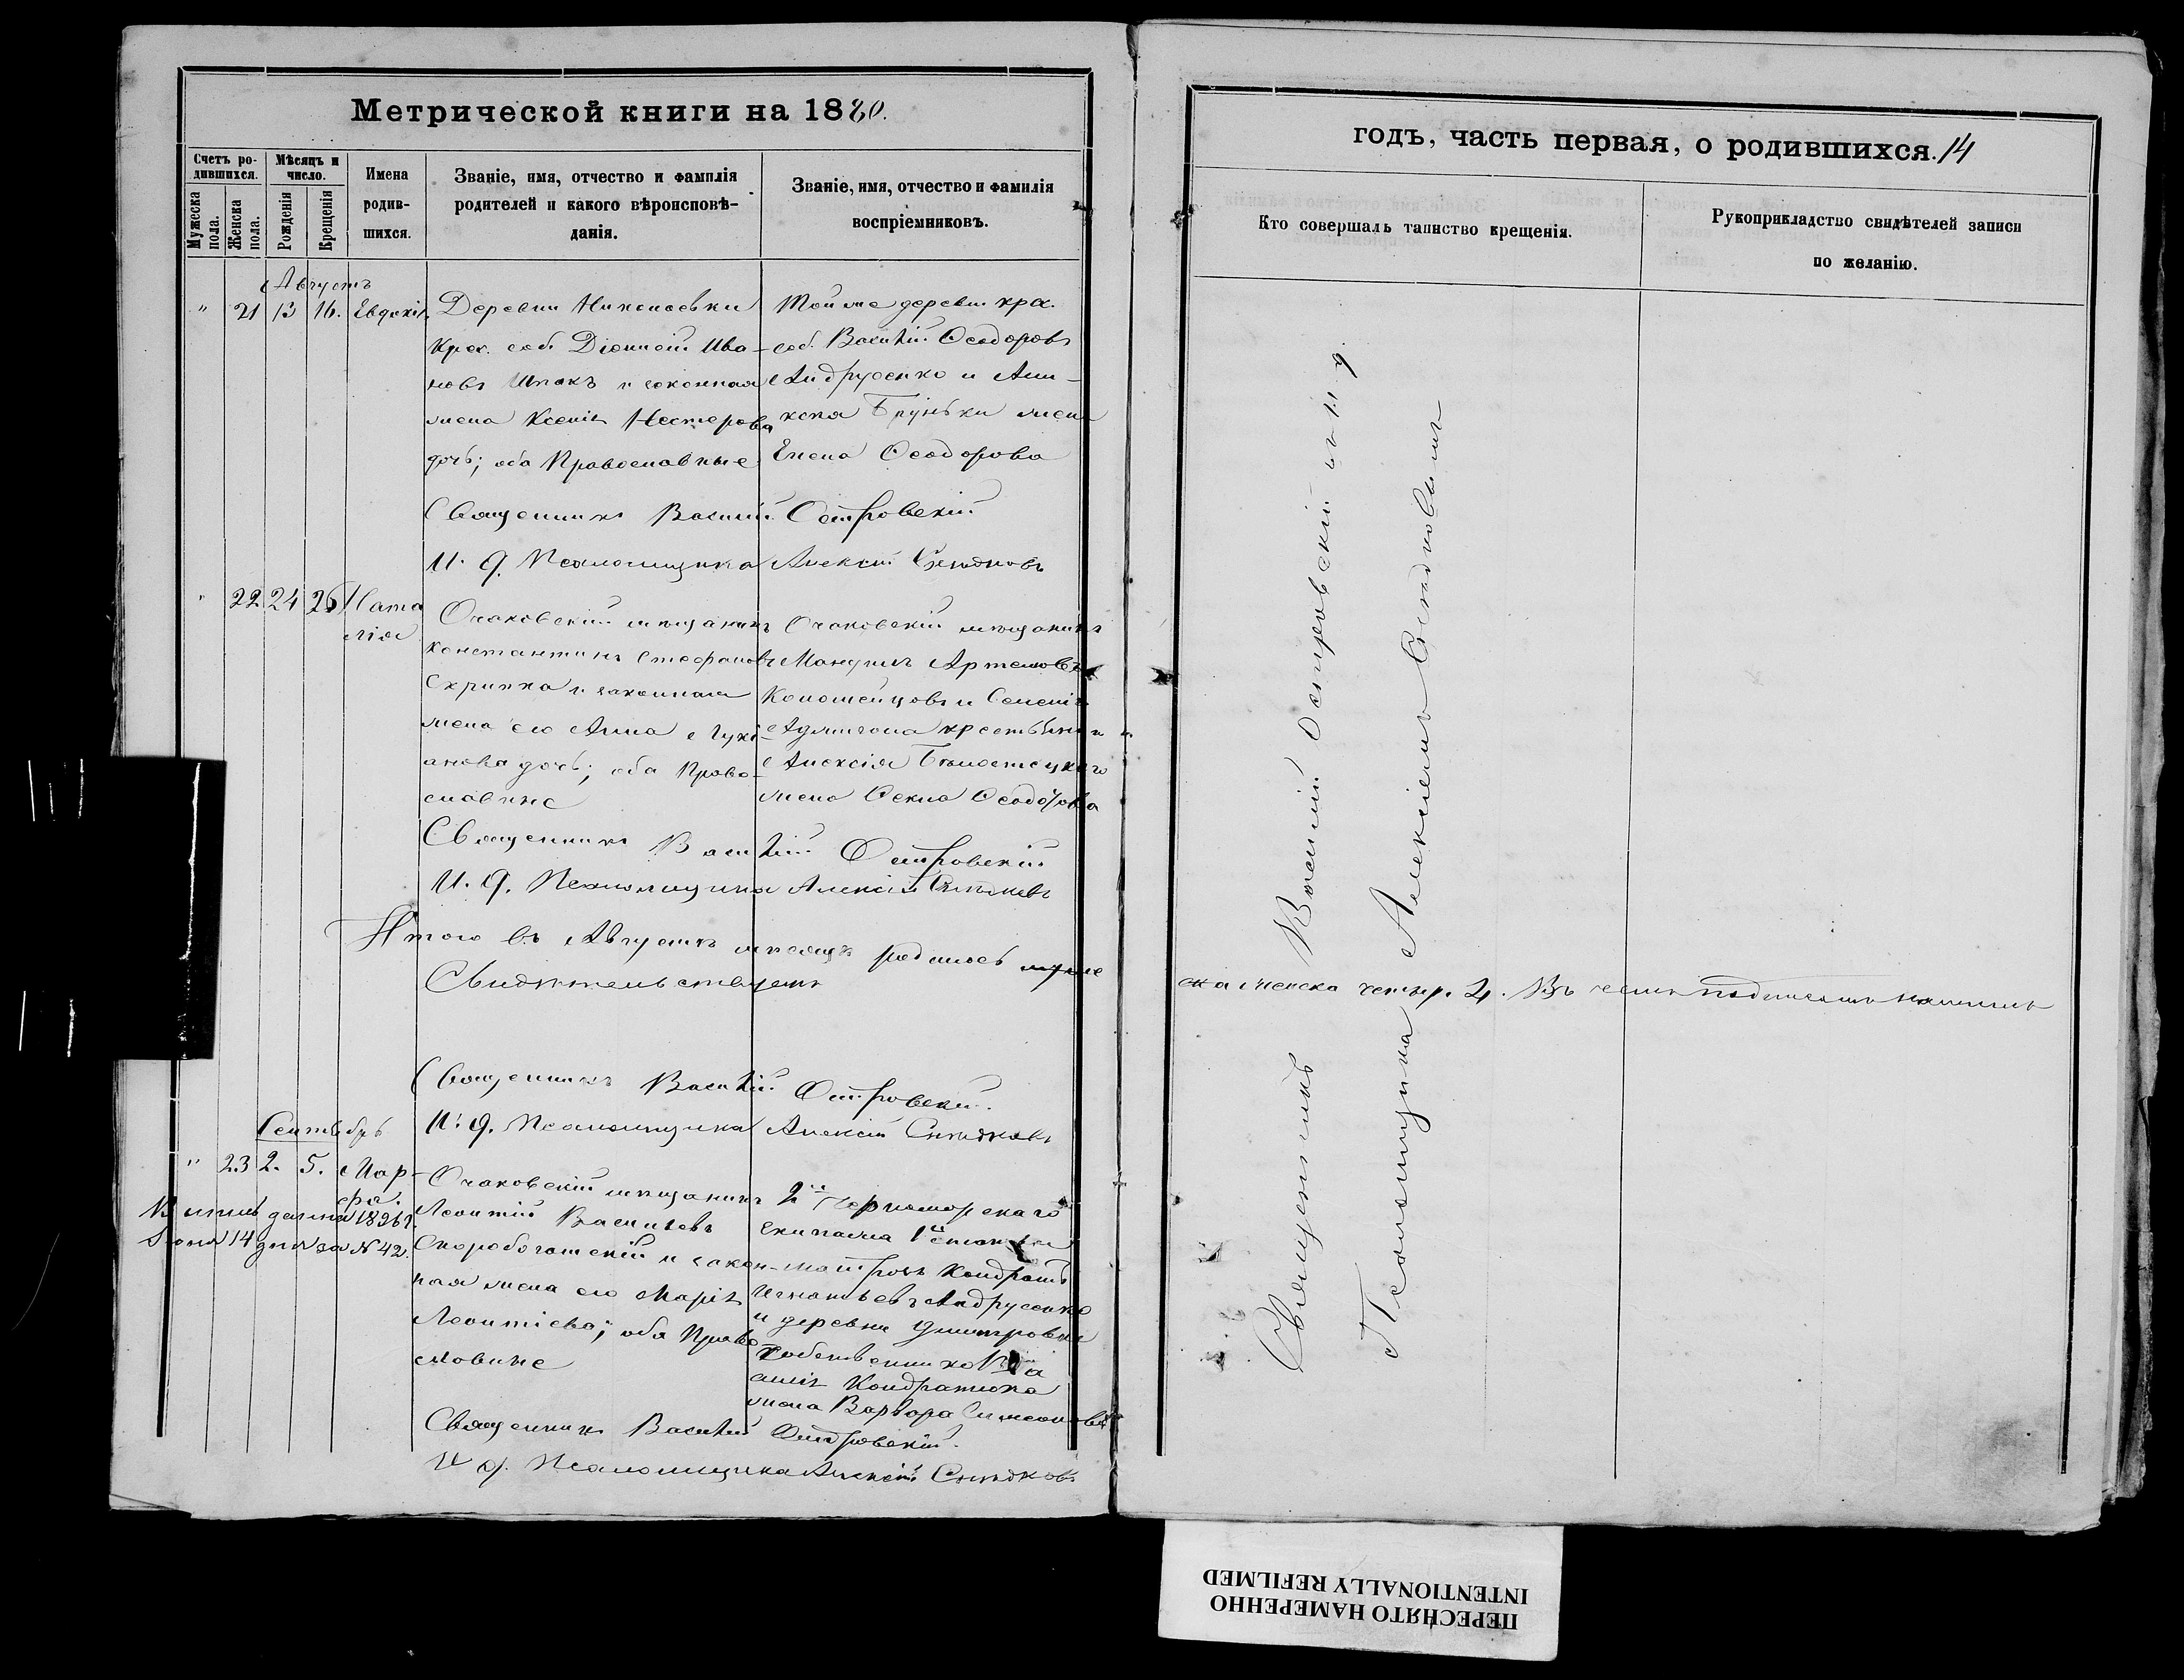 Метрической книги на 1880.
Счетъ ро-
дившихся.
Мужеска
пола.
Женска
пола.
Мѣсяцъ и
число.
Рожденія
Крещенія
Имена
родив-
шихся.
Званіе, имя, отчество и фамилія
родителей и какого вѣроисповѣ-
данія.
Званіе, имя, отчество и фамилія
воспріемниковъ.
Августъ
" 21 13 16. Евдокія.
Деревни Николаевки
Крес. соб. Діонисій Ива-
новъ Шпакъ и законная
жена Ксенія Нестерова
дочь; оба Православные
Той же деревни крес.
соб. Василій Ѳеодоровъ
Андрусенко и
жена
Елена Ѳеодорова
Священникъ Василій Островскій
И. д. Псаломщика Алексій
" 22 24 26 Ната
лія
Очаковскій мѣщанинъ
Константинъ Стефановъ
Скрипка и законная
жена его Анна Луки-
анова дочь; оба Право-
славные
Очаковскій мѣщанинъ
Артемовъ
и
крестьянина
Алексія
жена Ѳекла Ѳеодорова
Священникъ Василій Островскій
И. д. Псаломщика Алексій
Итого въ Августѣ мѣсяцѣ родилось муже
Свидѣтельствуемъ
Священникъ Василій Островскій.
И. д. Псаломщика Алексій
Сентябрь
" 23 2. 5. Мар-
фа.
1896 г.
14 дня за № 42.
Очаковскій мѣщанинъ
Леонтій Васильевъ
Скоробогатскій и закон-
ная жена его Марія
Леонтіева; оба Право
славные
2й Черноморскаго
экипажа 1й статьи
матросъ Кондратъ
Игнатьевъ Андрусенко
и деревни Дмитровки
собственника
Кондратюка
жена Варвара Симеонова
Священникъ Василій Островскій.
И д. Псаломщика Алексій
годъ, часть первая, о родившихся. 14
Кто совершалъ таинство крещенія.
Рукоприкладство свидѣтелей записи
по желанію.
Священникъ Василій Островскій съ и. д.
Псаломщика Алексіемъ
ска женска четыр. 4. Въ чемъ подписомъ нашимъ
ПЕРЕСНЯТО НАМЕРЕННО
INTENTIONALLY REFILMED